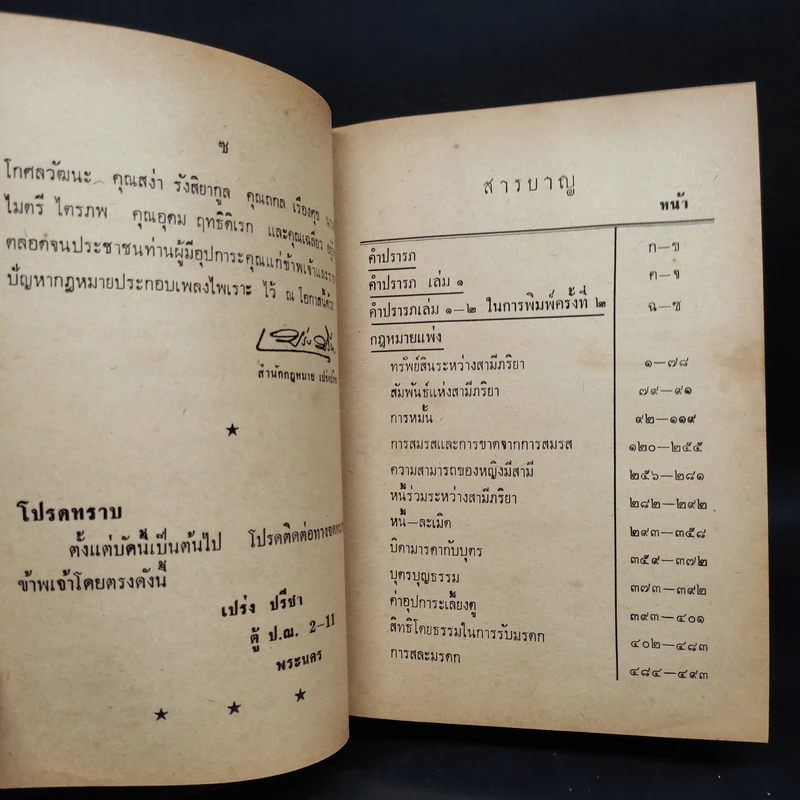 ซ
โกศลวัฒนะ คุณสง่า รังสิยากูล คุณถกล เรืองศุข
ไมตรี ไตรภพ คุณอุดม ฤทธิดิเรก และคุณเฉลียว
ตลอดจนประชาชนท่านผู้มีอุปการะคุณแก่ข้าพเจ้า
ปัญหากฎหมายประกอบเพลงไพเราะ ไว้ ณ โอกาสนี้ด้วย
สำนักกฎหมาย เปร่งปรีชา
โปรดทราบ
ตั้งแต่บัดนี้เป็นต้นไป โปรดติดต่อทางจดหมาย
ข้าพเจ้าโดยตรงดังนี้
เปร่ง ปรีชา
ตู้ ป.ณ. 2-11
พระนคร
สารบาญ
หน้า
คำปรารภ ก—ข
คำปรารภ เล่ม ๑ ค—จ
คำปรารภเล่ม ๑—๒ ในการพิมพ์ครั้งที่ ๒ ฉ—ซ
กฎหมายแพ่ง
ทรัพย์สินระหว่างสามีภริยา ๑—๗๘
สัมพันธ์แห่งสามีภริยา ๗๙—๙๑
การหมั้น ๙๒—๑๑๙
การสมรสและการขาดจากการสมรส ๑๒๐—๒๕๕
ความสามารถของหญิงมีสามี ๒๕๖—๒๘๑
หนี้ร่วมระหว่างสามีภริยา ๒๘๒—๒๙๒
หนี้—ละเมิด ๒๙๓—๓๕๘
บิดามารดากับบุตร ๓๕๙—๓๗๒
บุตรบุญธรรม ๓๗๓—๓๙๒
ค่าอุปการะเลี้ยงดู ๓๙๓—๔๐๑
สิทธิโดยธรรมในการรับมรดก ๔๐๒—๔๘๓
การสละมรดก ๔๘๔—๔๙๓